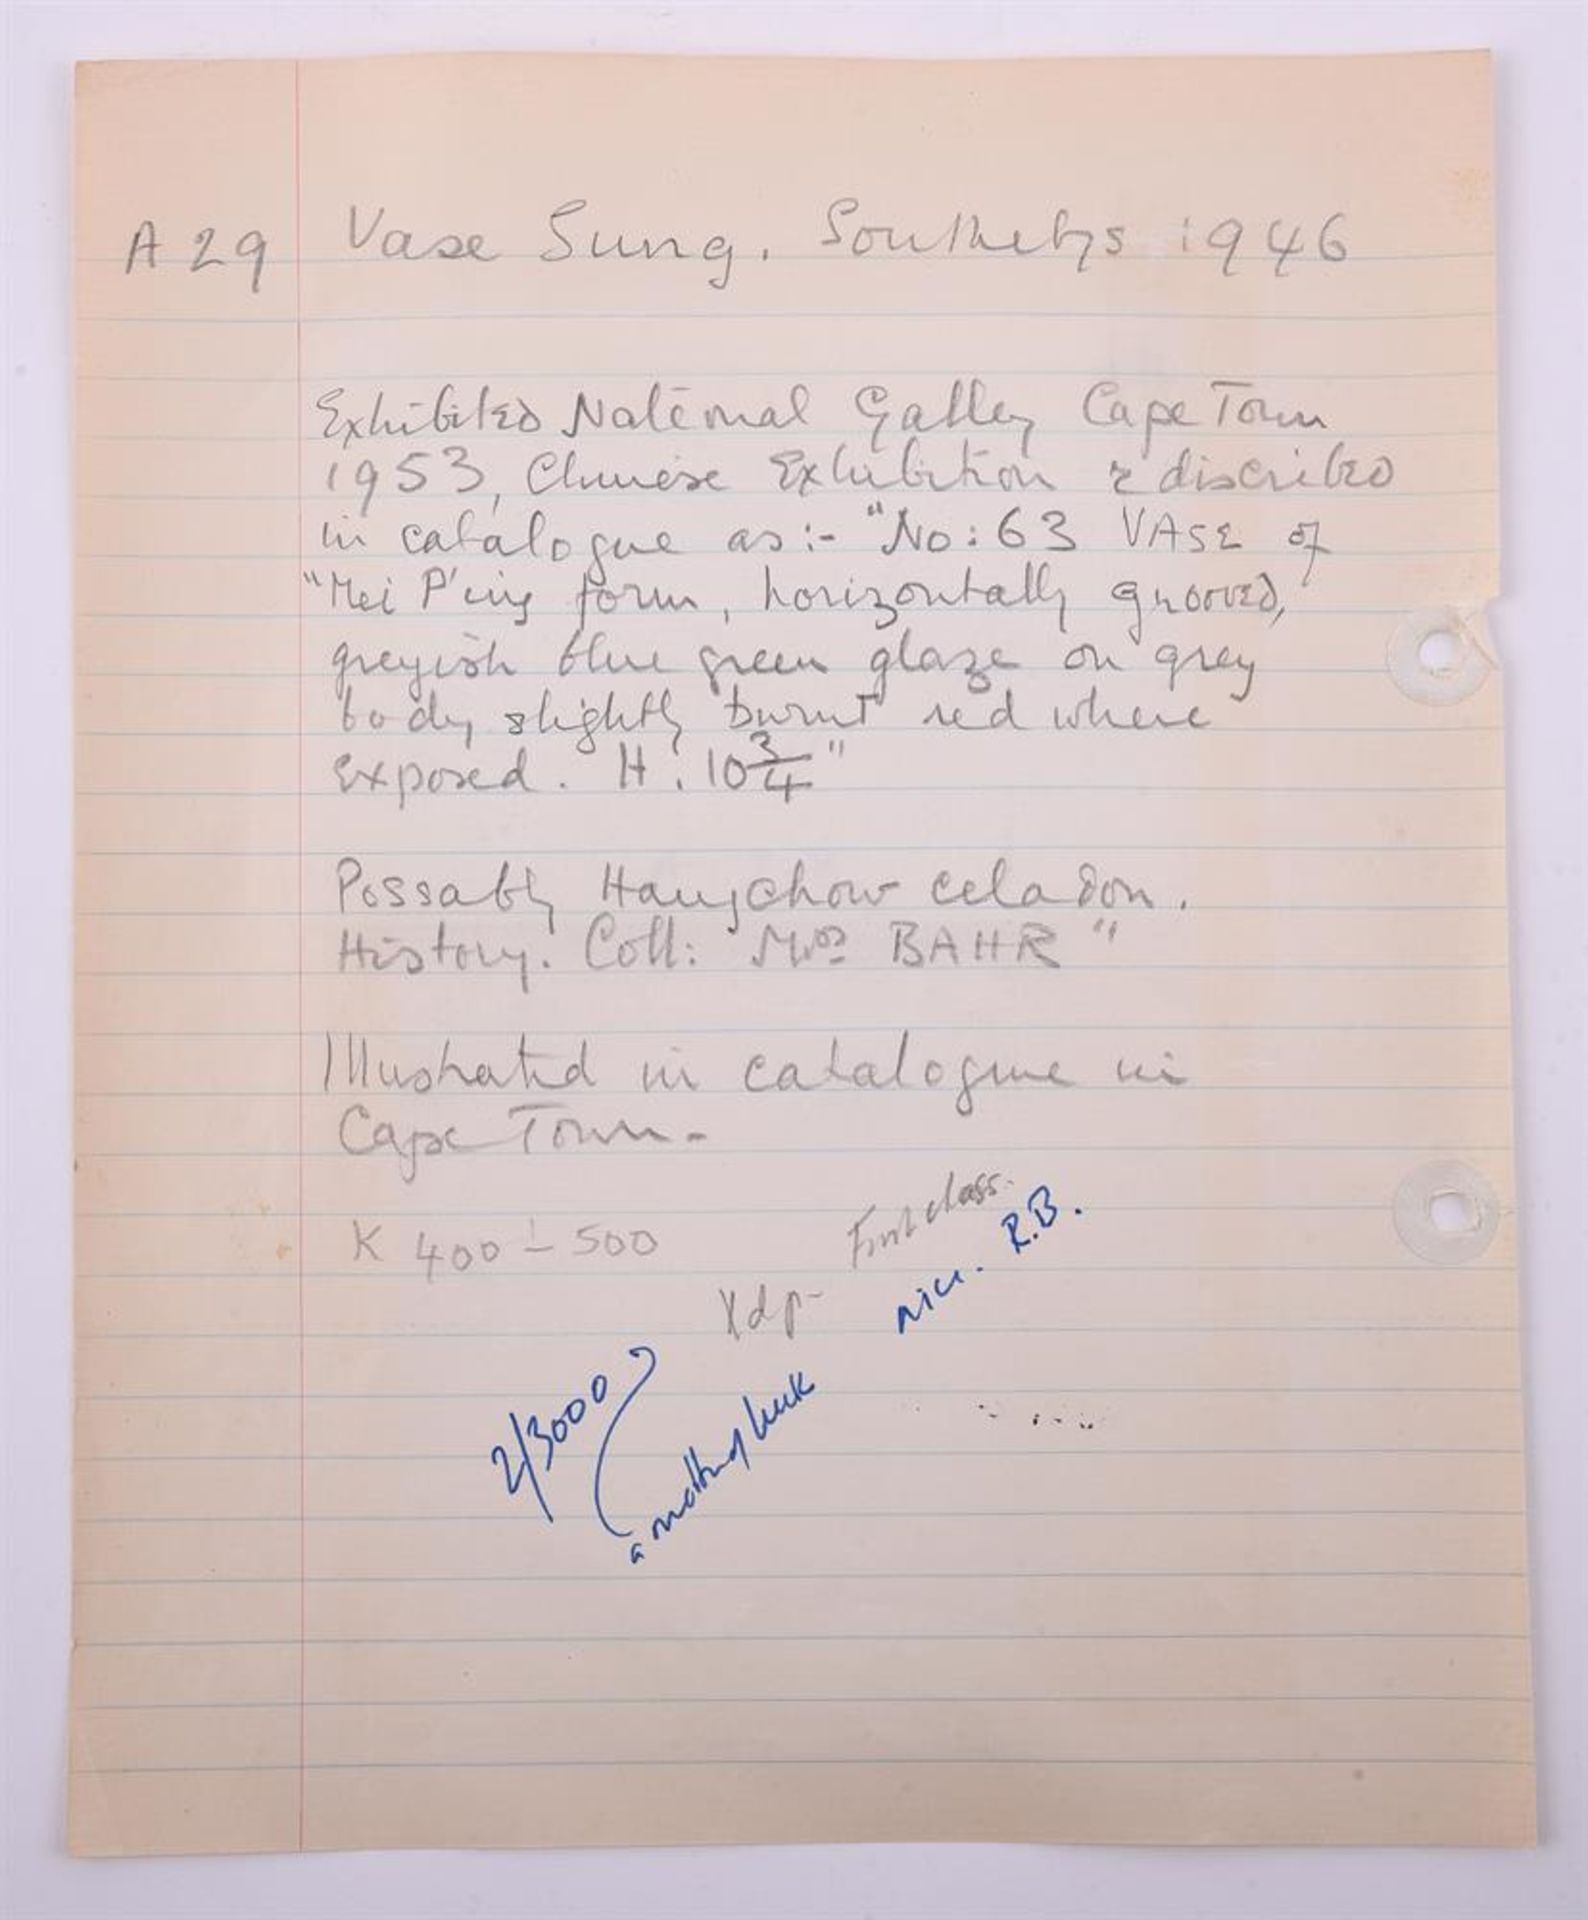 A 29 Vase Sung. Southebys 1946
Exhibited National Galley Cape Town
1953, Chinese Exhibition & discribed
in catalogue as:- "No: 63 VASE of
"Mei P'ing form, horizontally grooved,
greyish blue green glaze on grey
body slightly burnt red where
exposed. H. 10 3/4"
Possably Hangchow celadon.
History. Coll: Mrs BAHR"
Illustrated in catalogue in
Cape Town-
First class.
K 400 - 500
nice. R.B.
2/3000
a